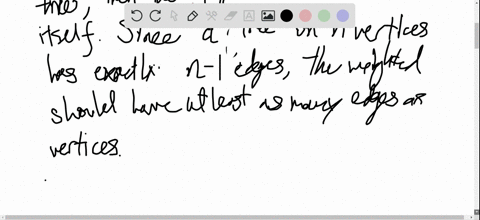 itself. Since a tree on n vertices
has exactly n-1 edges, the weighted
should have at least as many edges as
vertices.